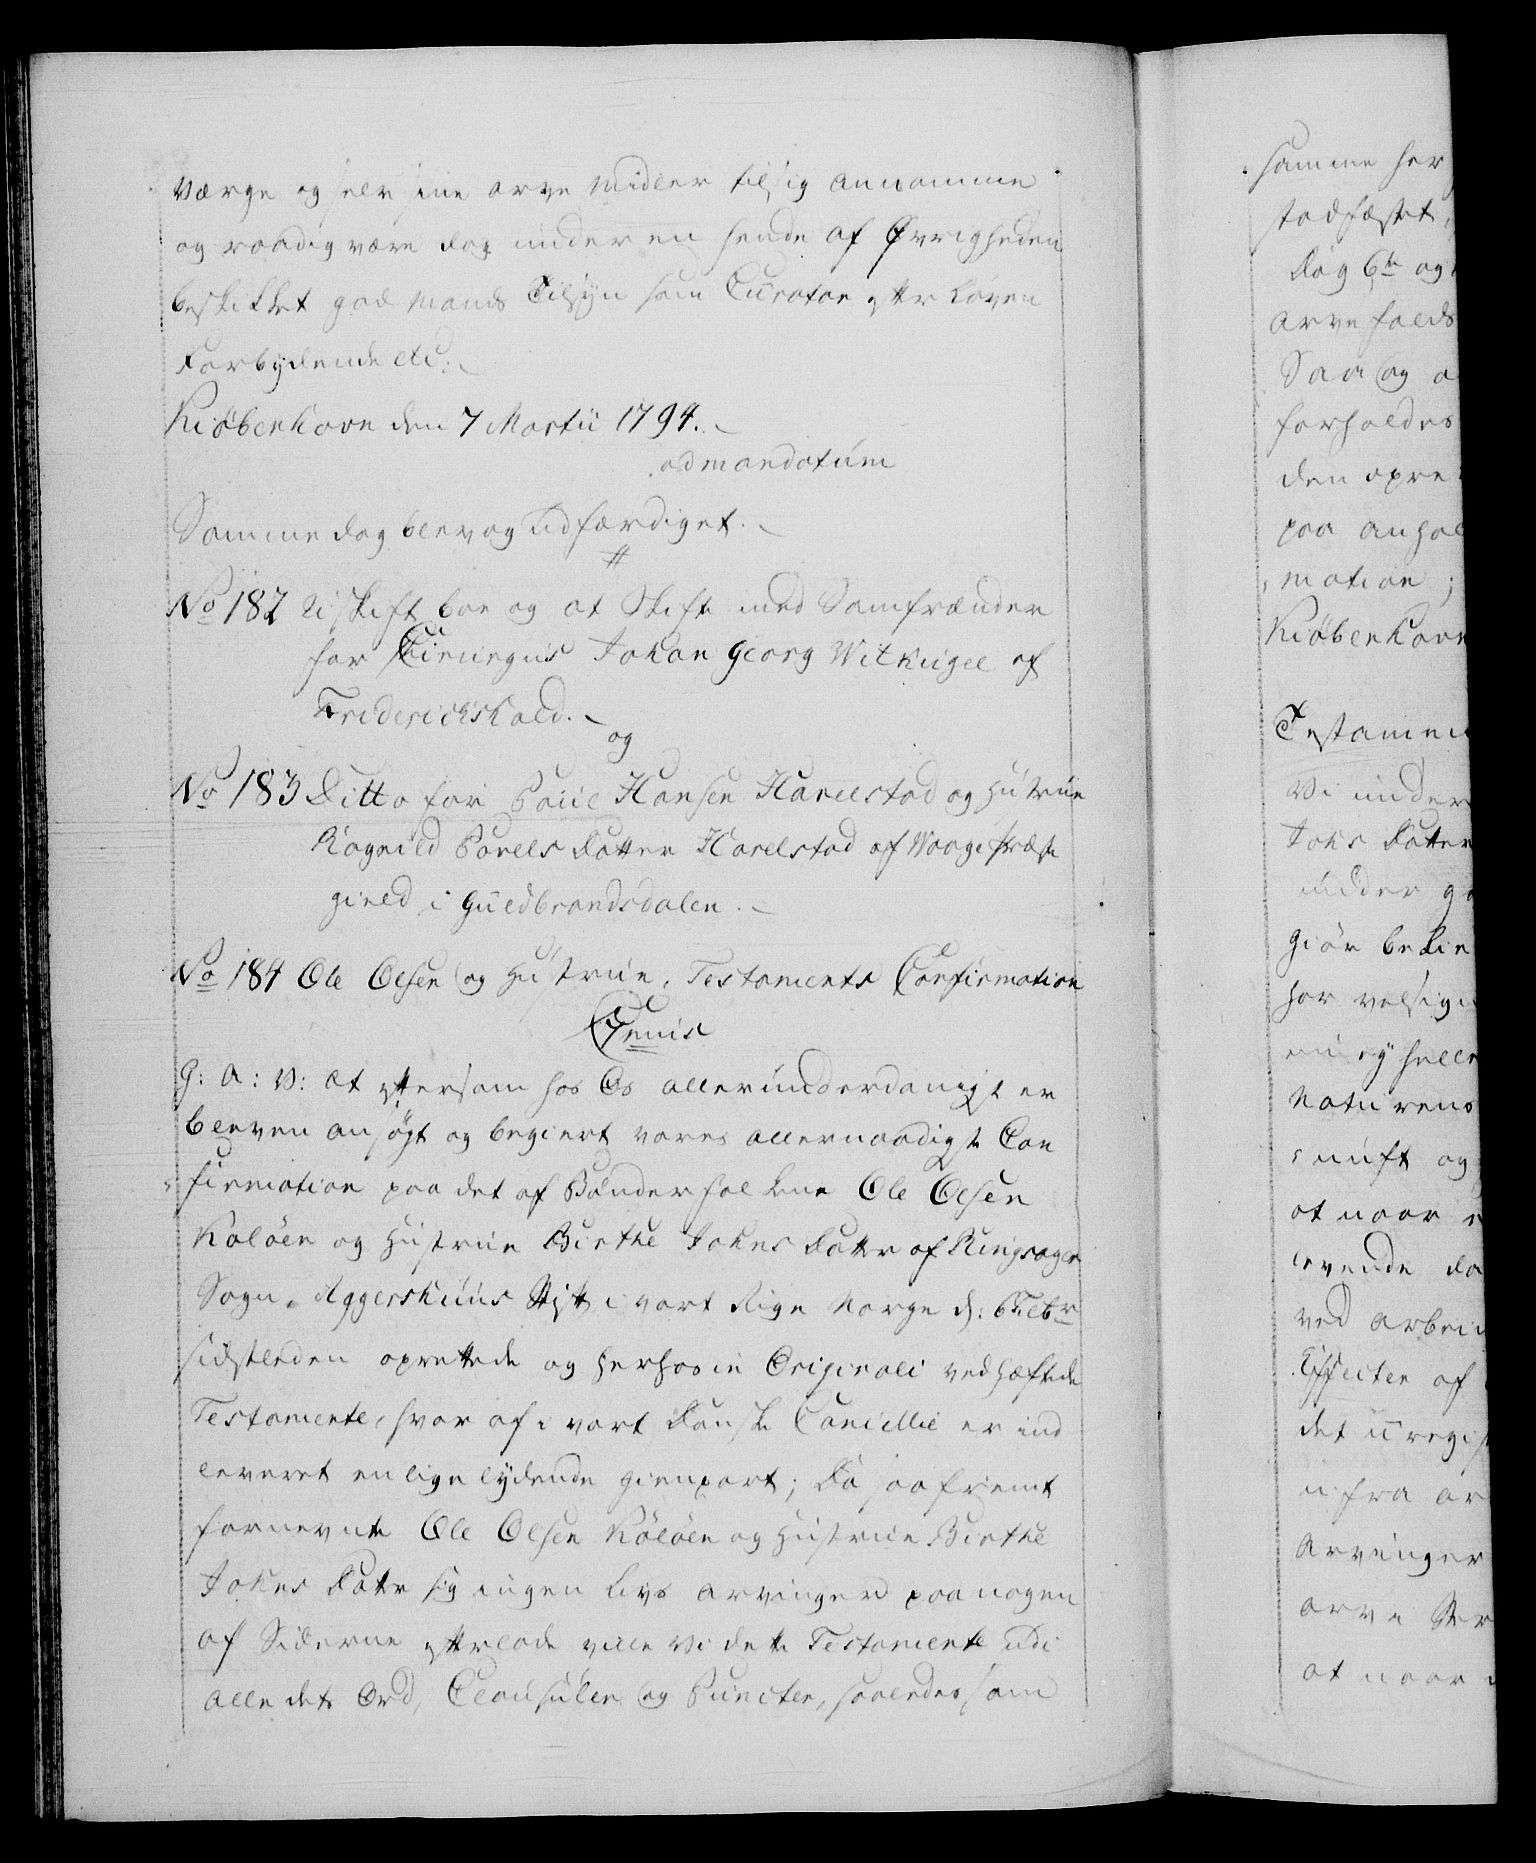 Værge og selv sine arve Midler til sig annamme
og raadig være dog under en hende af Øvrigheden
beskikket god Mands Tilsyn som Curator efter Loven
Forbydende etc:
Kiøbenhavn den 7 Martii 1794.
ad mandatum
Samme dag blev og udfærdiget.
No 182 Uskift boe og at Skifte med Samfrænder
for Chirurgus Johan Georg Witkugel af
Friderichshald.
og
No 183 Ditto for Poul Hansen Harelstad og Hustrue
Ragnild Povels Datter Harelstad af Waage Præste
gield i Guldbrandsdalen.
No 184 Ole Olsen og Hustrue, Testaments Confirmation
Genis
G: A: V: at eftersom hos Os allerunderdanigst er
bleven ansøgt og begiert vores allernaadigste Con
firmation paa det af Bønderfolkene Ole Olsen
Koløen og Hustrue Birthe Johns Datter af Ringsager
Sogn, Aggershuus Stift i vort Rige Norge d: 6 Febr
sidstleden oprettede og herhos in Originali vedhæftede
Testamente, hvor af i vort Danske Cancellie er ind
leveret en lige lydende Gienpart; Da saafremt
fornevnte Ole Olsen Koløen og Hustrue Birthe
Johns Datter sig ingen Livs Arvinger paa nogen
af Siderne efterlade ville Vi dette Testamente udi
alle dets Ord, Clausuler og Puncter, saaledes som
samme her
stadfæstet,
Dog 6te og
Arvefalds
Saa og a
forholdes
den opre
paa anhol
mation;
Kiøbenhavn
Testamen
Vi under
Johs Datter
under g
Giør bekie
har velsign
ni ey heller
Naturens
nuft og
at naar e
levende da
ved Arbei
Effecter af
det u regis
u fra ar
Arvinger
arve Ster
at naar